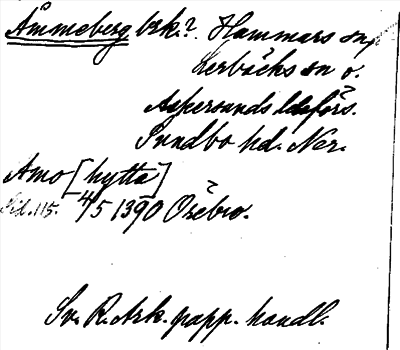 Åmmeberg brk.? Hammars sn,
Lerbäcks sn o.
Askersunds ldsförs.
Sundbo hd. Ner.
Amo [hytta]
Sid. 115. 4/5 1390 Örebro.
Sv. R. Ark. papp. handl.